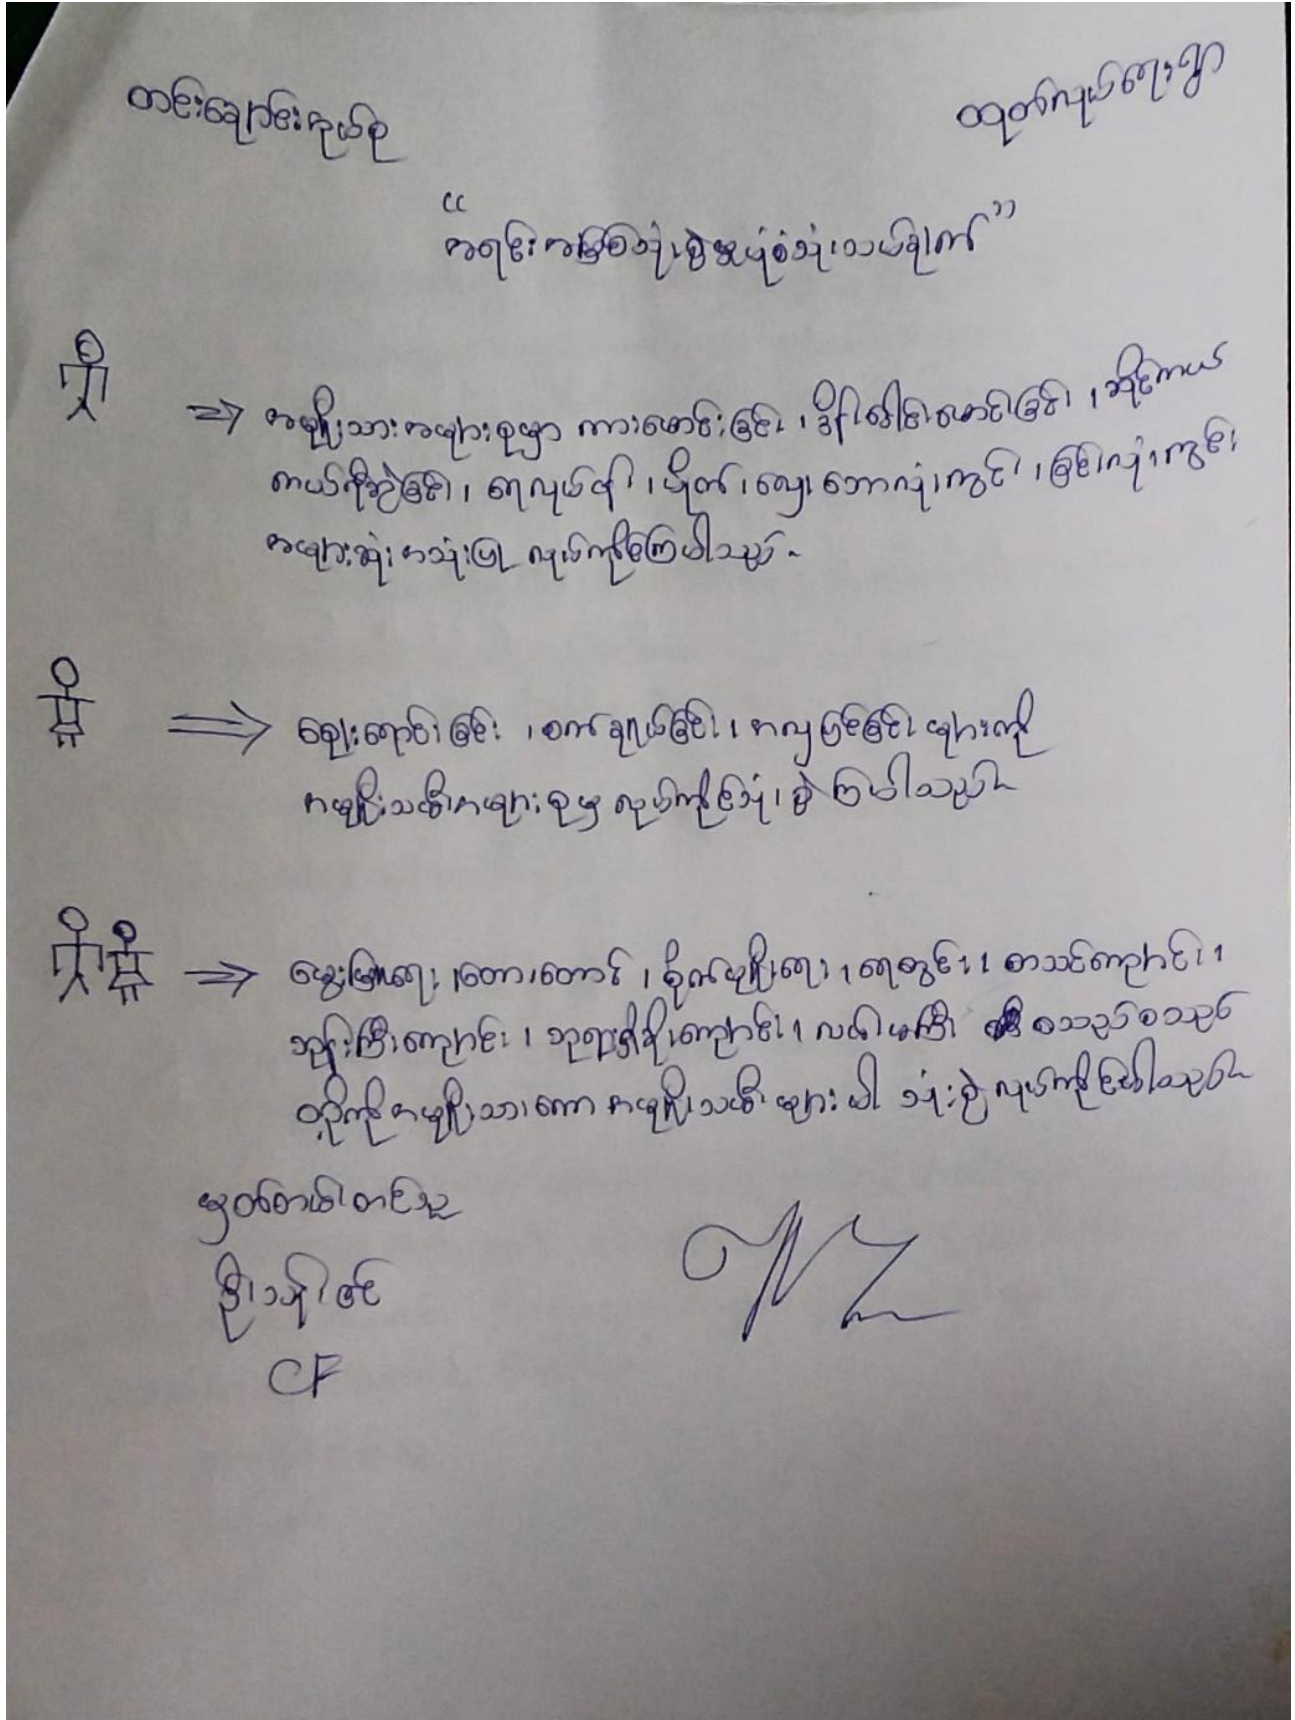 ထုတ်လုပ်ရေးရွာ
"အရင်းအမြစ်သုံးစွဲမှုပုံစံသုံးသပ်ချက်"
အမျိုးသားအများစုမှာ ကားမောင်းခြင်း၊ ဆိုင်ကယ်
ကယ်ရီဆွဲခြင်း၊ ရေလုပ်ငန်း၊ ပိုက်၊ လှေ၊ ဘောလုံးကွင်း၊ ခြင်းလုံးကွင်း
အများဆုံး အသုံးပြု လုပ်ကိုင်ကြပါသည်။
ဈေးရောင်းခြင်း၊ စက်ချုပ်ခြင်း၊ အလှပြင်ခြင်းများကို
အမျိုးသမီးအများစုမှ လုပ်ကိုင်သုံးစွဲကြပါသည်။
မွေးမြူရေး၊ တော၊ တောင်၊ စိုက်ပျိုးရေး၊ ရေတွင်း၊ စာသင်ကျောင်း၊
ဘုန်းကြီးကျောင်း၊ ဘုရားရှိခိုးကျောင်း၊ စသည်စသည်
တို့ကို အမျိုးသားကော အမျိုးသမီးများပါ သုံးစွဲလုပ်ကိုင်ပါသည်။
မှတ်တမ်းတင်သူ
CF